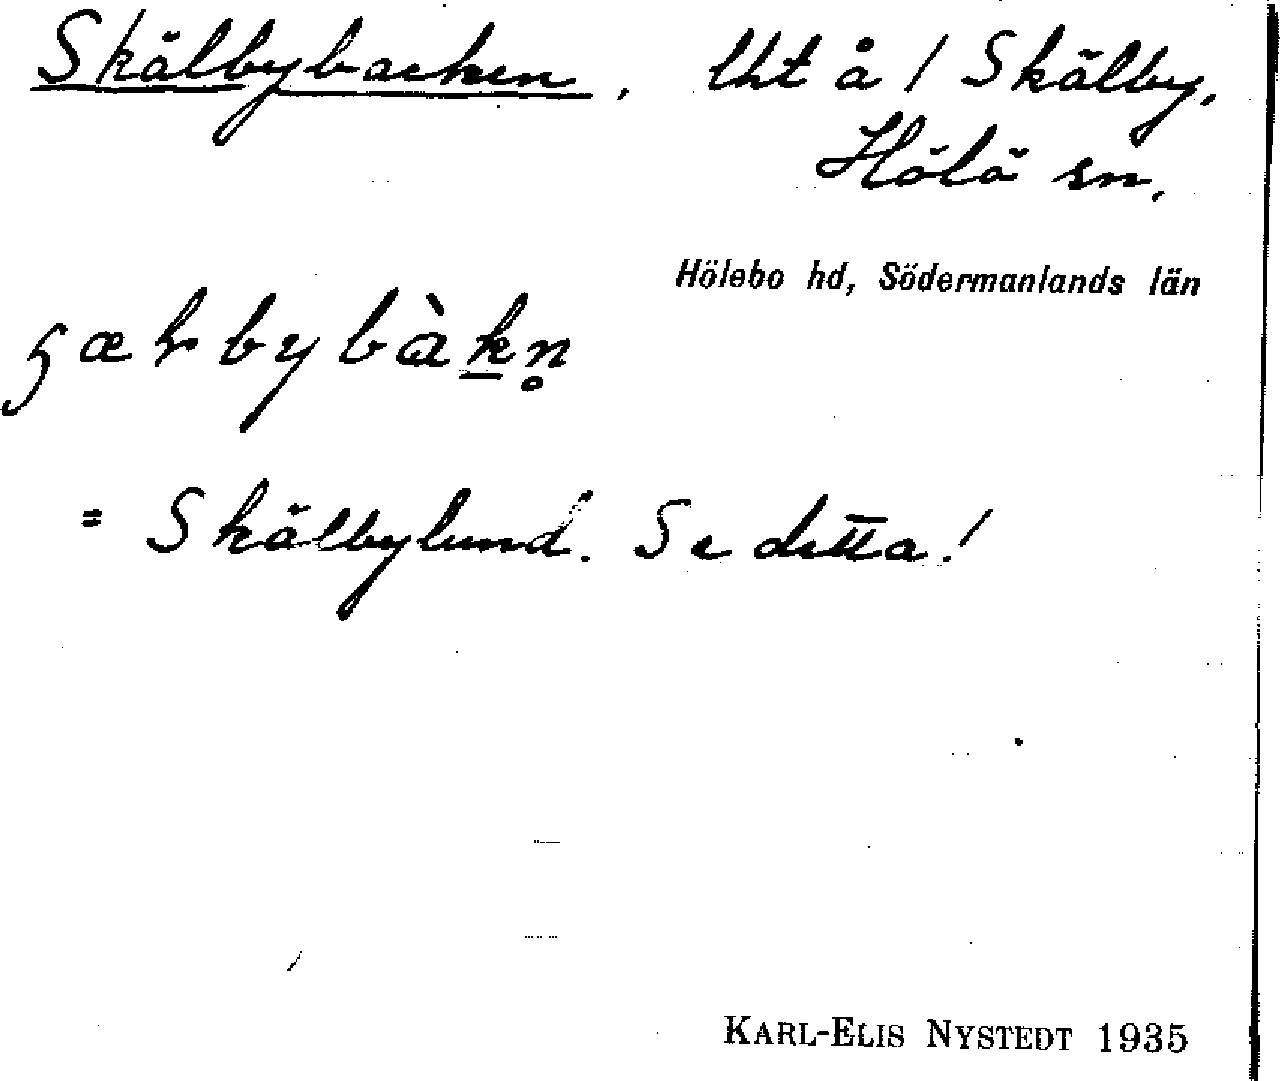 Skälbybacken, Uht å / Skälby,
Hölö sn,
Hölebo hd, Södermanlands län
= Skälbylund. Se detta!
KARL-ELIS NYSTEDT 1935